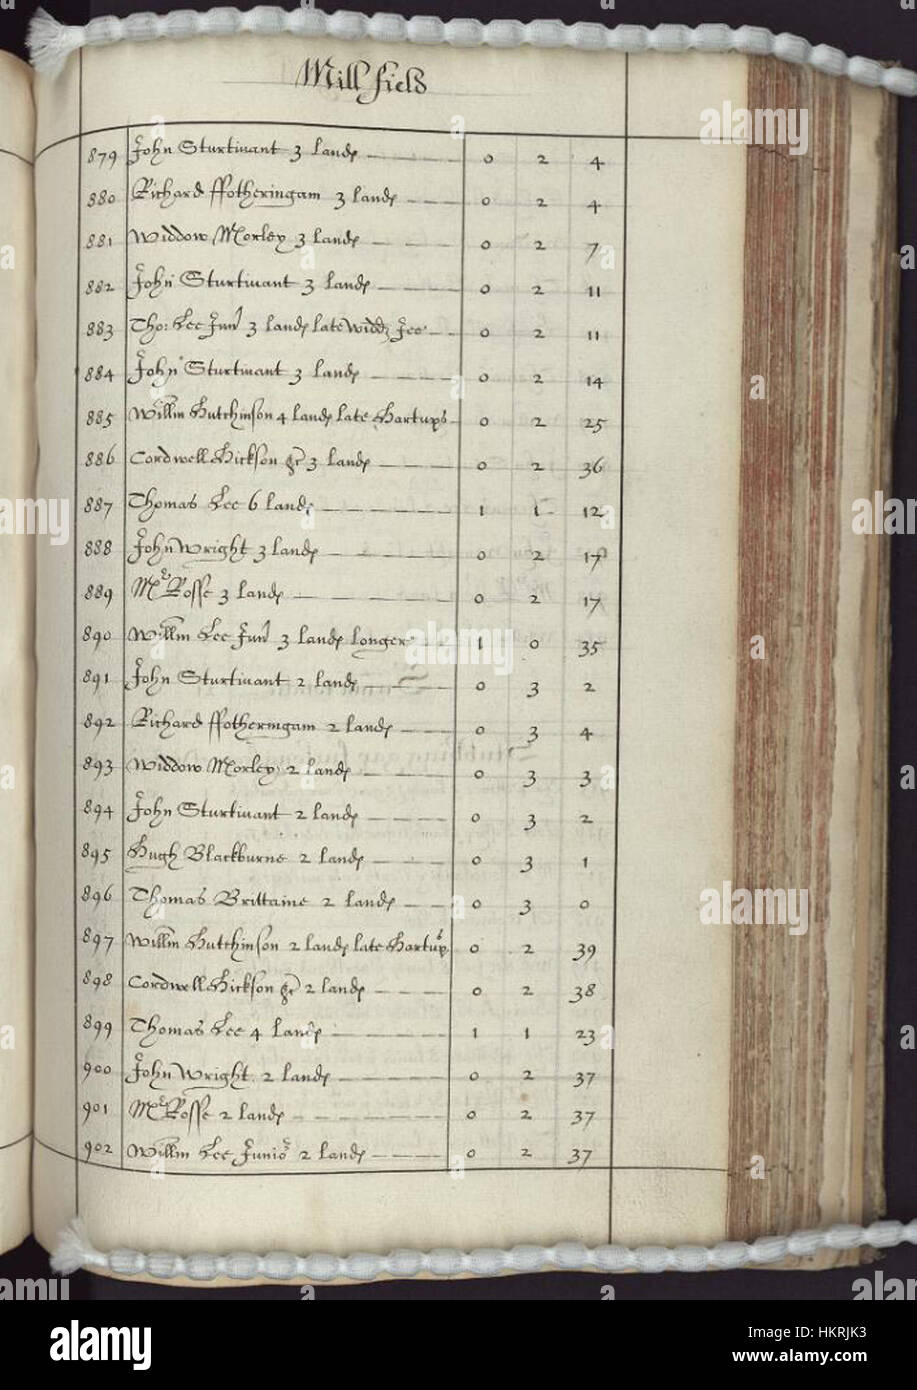 Mill field
879 John Sturtivant 3 lands 0 2 4
880 Richard ffotheringam 3 lands 0 2 4
881 Widdow Morley 3 lands 0 2 7
882 John Sturtivant 3 lands 0 2 11
883 Tho: Lee Jun 3 lands late Widd Lee 0 2 11
884 John Sturtivant 3 lands 0 2 14
885 Willm Hutchinson 4 lands late Hartups 0 2 25
886 Cordwell Hickson gt 3 lands 0 2 36
887 Thomas Lee 6 lands 1 1 12
888 John Wright 3 lands 0 2 17
889 Mr Rosse 3 lands 0 2 17
890 Willm Lee Jun 3 lands longer 1 0 35
891 John Sturtivant 2 lands 0 3 2
892 Richard ffotheringam 2 lands 0 3 4
893 Widdow Morley 2 lands 0 3 3
894 John Sturtivant 2 lands 0 3 2
895 Hugh Blackburne 2 lands 0 3 1
896 Thomas Brittaine 2 lands 0 3 0
897 Willm Hutchinson 2 lands late Hartups 0 2 39
898 Cordwell Hickson gt 2 lands 0 2 38
899 Thomas Lee 4 lands 1 1 23
900 John Wright 2 lands 0 2 37
901 Mr Rosse 2 lands 0 2 37
902 Willm Lee Junior 2 lands 0 2 37
alamy
alamy
Image ID: HKRJK3
www.alamy.com